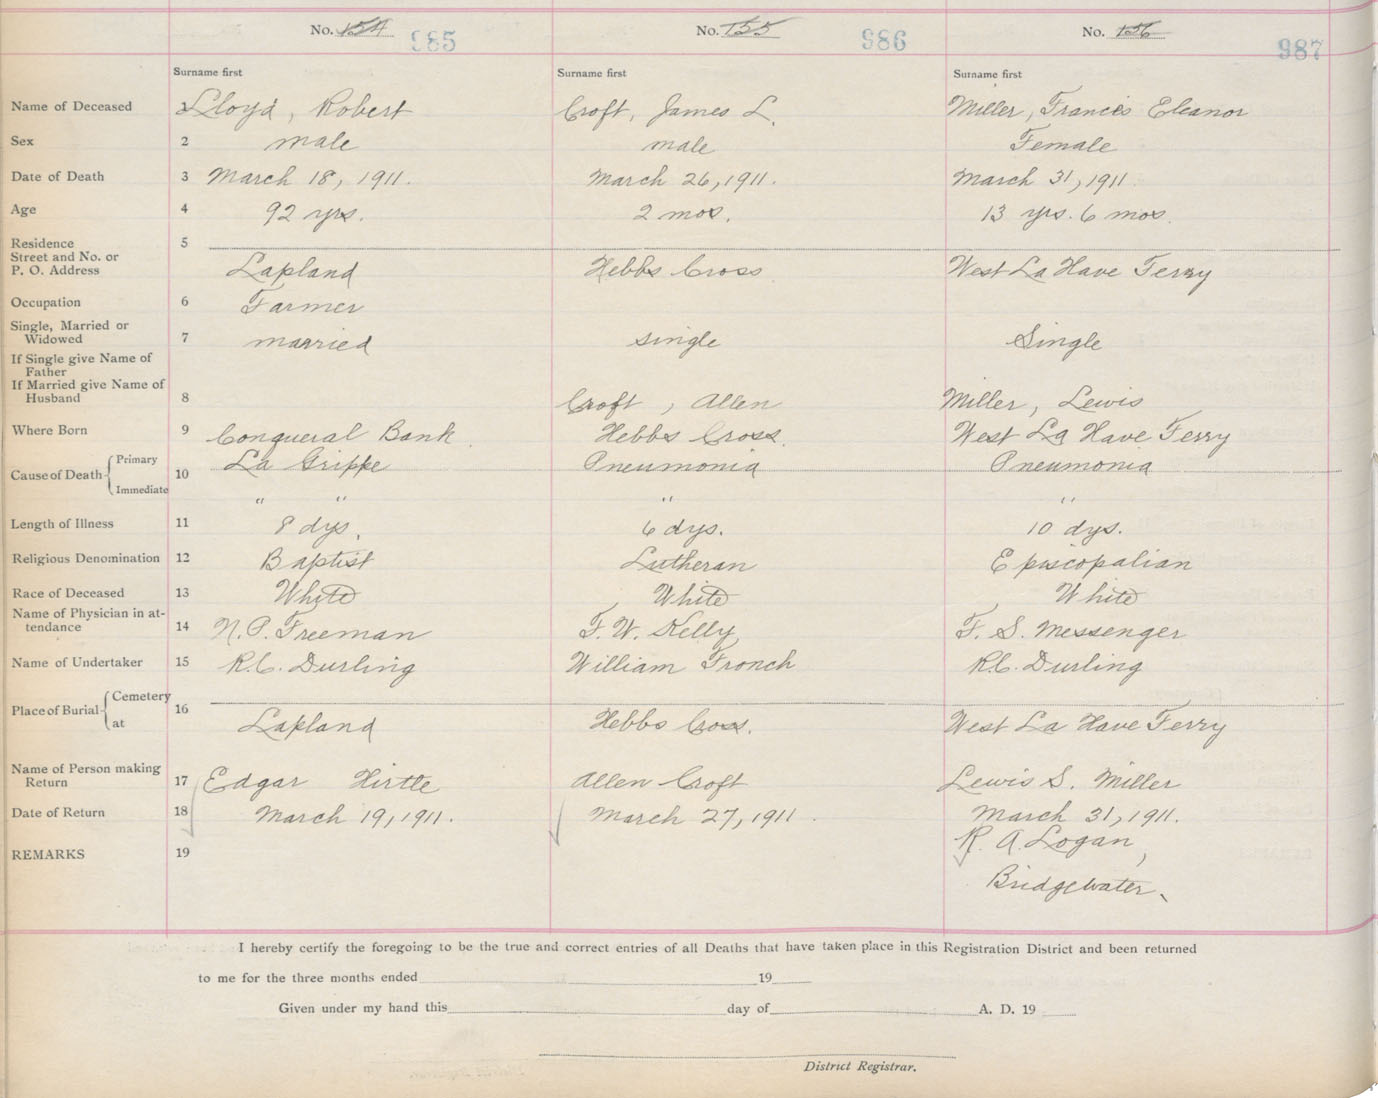 No. 154 985 No. 155 986 No. 156 987
Surname first Surname first Surname first
Name of Deceased 1 Lloyd, Robert Croft, James L. Miller, Francis Eleanor
Sex 2 male male Female
Date of Death 3 March 18, 1911. March 26, 1911. March 31, 1911
Age 4 92 yrs. 2 mos. 13 yrs. 6 mos.
Residence 5
Street and No. or
P. O. Address Lapland Hebbs Cross West La Have Ferry
Occupation 6 Farmer
Single, Married or
Widowed 7 married single Single
If Single give Name of
Father
If Married give Name of
Husband 8 Croft, Allen Miller, Lewis
Where Born 9 Conqueral Bank. Hebbs Cross. West La Have Ferry
Cause of Death Primary 10 La Grippe Pneumonia Pneumonia
Immediate " " " "
Length of Illness 11 8 dys. 6 dys. 10 dys.
Religious Denomination 12 Baptist Lutheran Episcopalian
Race of Deceased 13 White White White
Name of Physician in at-
tendance 14 N. P. Freeman F. W. Kelly F. S. Messenger
Name of Undertaker 15 R.C. Durling William Fronch R.C. Durling
Place of Burial Cemetery 16
at Lapland Hebbs Cross. West La Have Ferry
Name of Person making
Return 17 Edgar Hirtle Allen Croft Lewis S. Miller
Date of Return 18 March 19, 1911. March 27, 1911. March 31, 1911.
REMARKS 19 R. A. Logan,
Bridgewater.
I hereby certify the foregoing to be the true and correct entries of all Deaths that have taken place in this Registration District and been returned
to me for the three months ended 19
Given under my hand this day of A. D. 19
District Registrar.